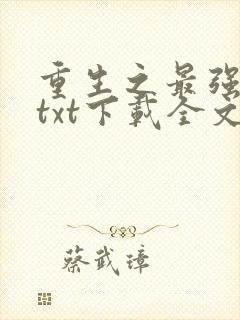 重生之最强
txt下载全文
蔡武璋